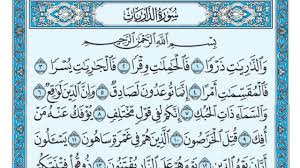 سُورَةُ الذَّارِيَاتِ
بِسْمِ ٱللَّهِ ٱلرَّحْمَٰنِ ٱلرَّحِيمِ
وَٱلذَّٰرِيَٰتِ ذَرْوًا ١ فَٱلْحَٰمِلَٰتِ وِقْرًا ٢ فَٱلْجَٰرِيَٰتِ يُسْرًا ٣
فَٱلْمُقَسِّمَٰتِ أَمْرًا ٤ إِنَّمَا تُوعَدُونَ لَصَادِقٌ ٥ وَإِنَّ ٱلدِّينَ لَوَٰقِعٌ ٦
وَٱلسَّمَآءِ ذَاتِ ٱلْحُبُكِ ٧ إِنَّكُمْ لَفِى قَوْلٍ مُّخْتَلِفٍ ٨ يُؤْفَكُ عَنْهُ مَنْ
أُفِكَ ٩ قُتِلَ ٱلْخَرَّٰصُونَ ١٠ ٱلَّذِينَ هُمْ فِى غَمْرَةٍ سَاهُونَ ١١ يَسْـَٔلُونَ